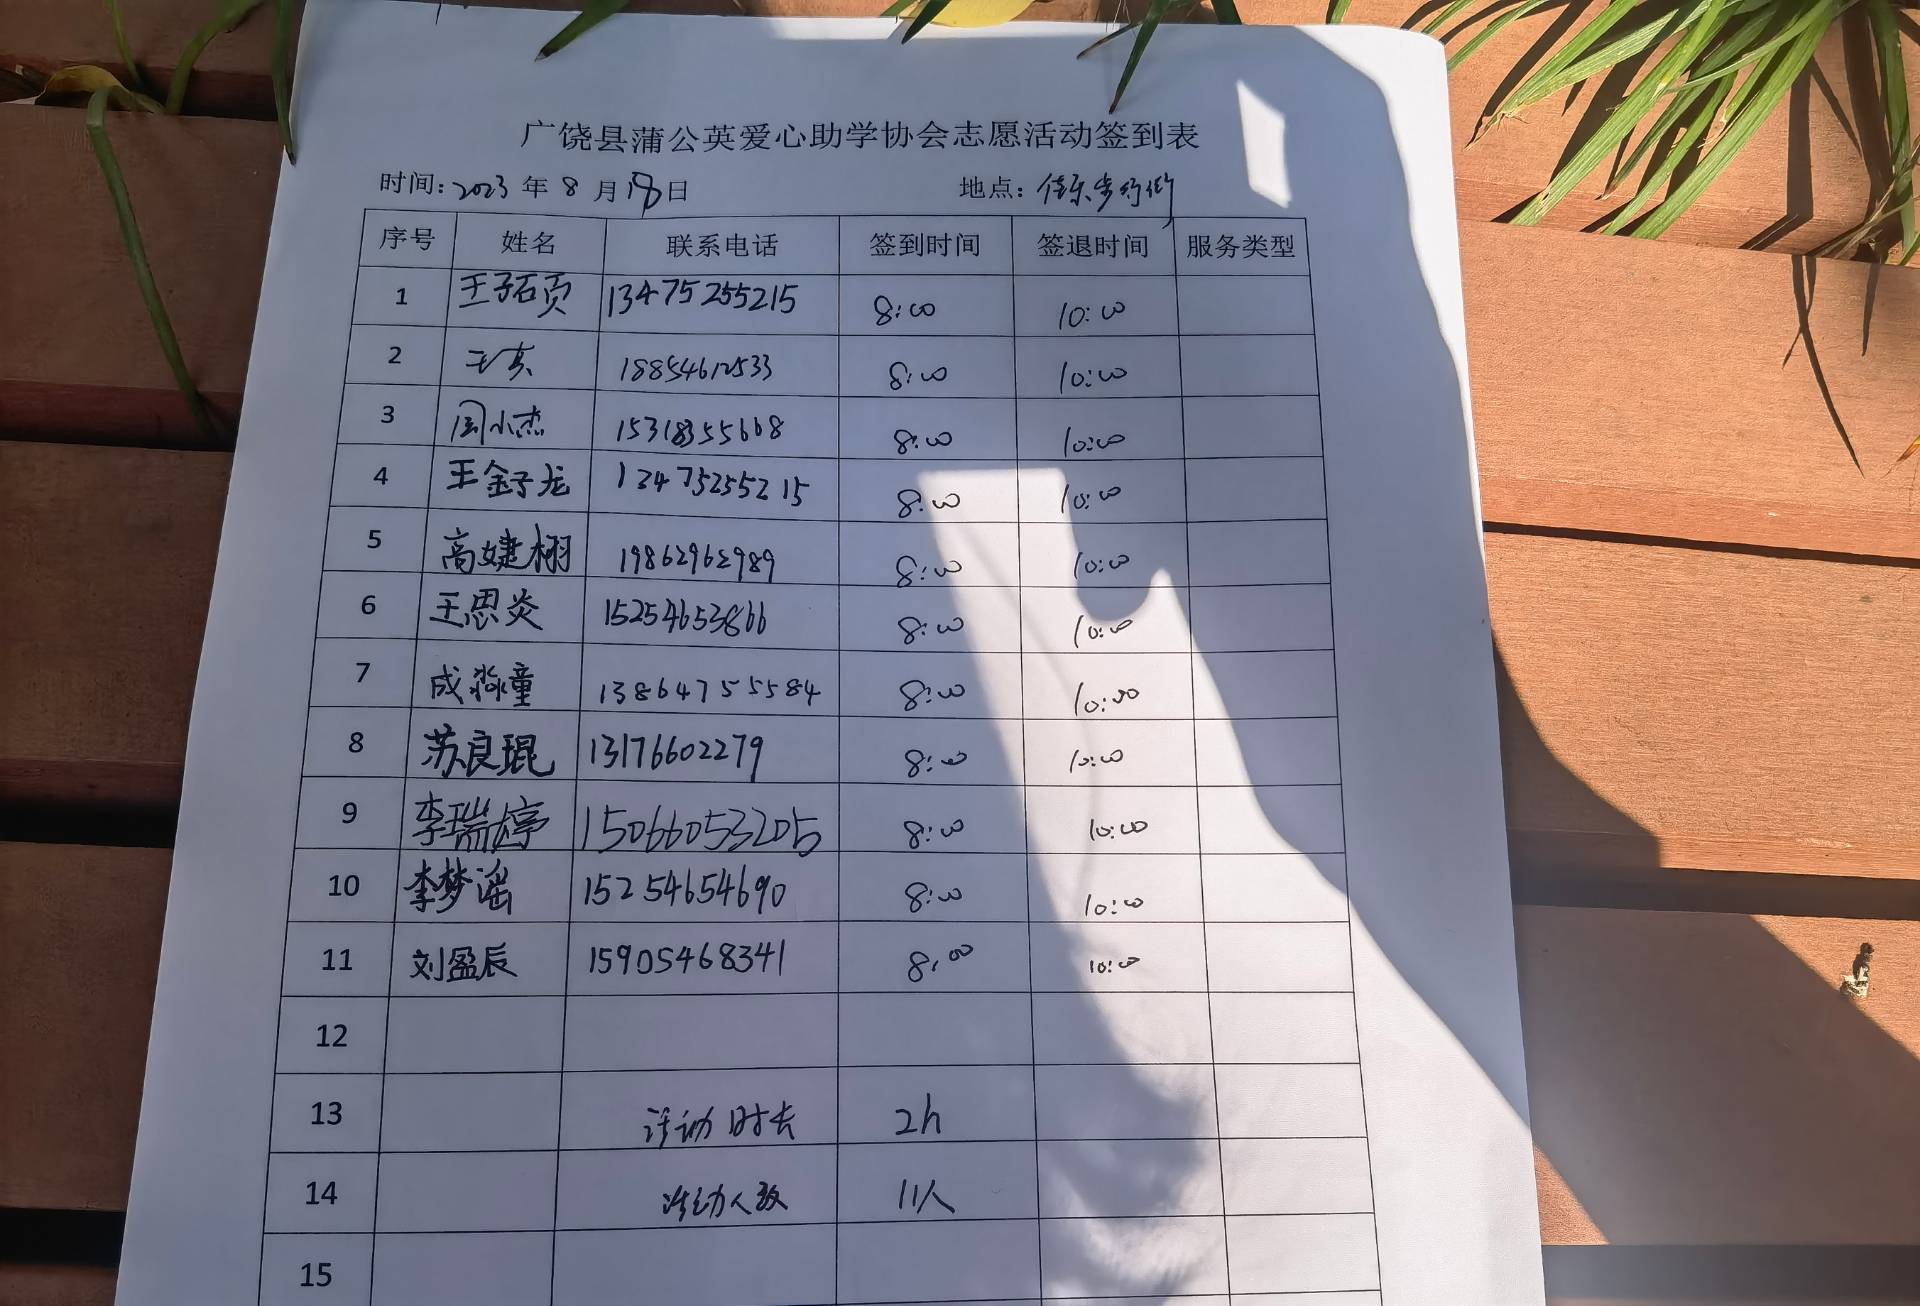 广饶县蒲公英爱心助学协会志愿活动签到表
时间:2023 年 8 月 日 地点: 步行街
序号 姓名 联系电话 签到时间 签退时间 服务类型
1 王子硕 13475255215 8:00 10:00
2 18854612533 8:00 10:00
3 周小杰 15318355668 8:00 10:00
4 王金子龙 13475255215 8:00 10:00
5 高婕栩 19862962989 8:00 10:00
6 王思炎 15254653866 8:00 10:00
7 成淼童 13864755584 8:00 10:00
8 苏良琨 13176602279 8:00 10:00
9 李瑞婷 15066053205 8:00 10:00
10 李梦谣 15254654690 8:00 10:00
11 刘盈辰 15905468341 8:00 10:00
12
13 活动时长 2h
14 活动人数 11人
15